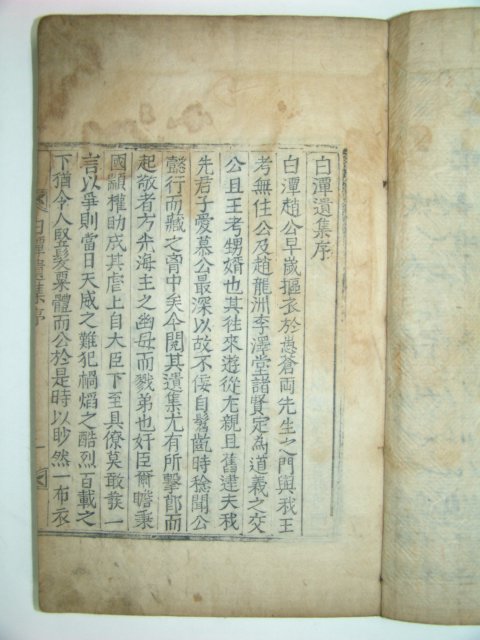 白潭遺集序
白潭趙公早歲摳衣於愚蒼兩先生之門與我王
考無住公及趙龍洲李澤堂諸賢定為道義之交
公且王考甥婿也其往來遊從尤親且舊逮夫我
先君子愛慕公最深以故不佞自髫齔時稔聞公
懿行而藏之膏中矣今閱其遺集尤有所擊節而
起敬者方光海主之幽母而戮弟也奸臣爾瞻秉
國顓權助成其虐上自大臣下至具僚莫敢發一
言以爭則當日天威之難犯禍焰之酷烈百載之
下猶令人竪髮粟體而公於是時以眇然一布衣
白潭遺集序
一